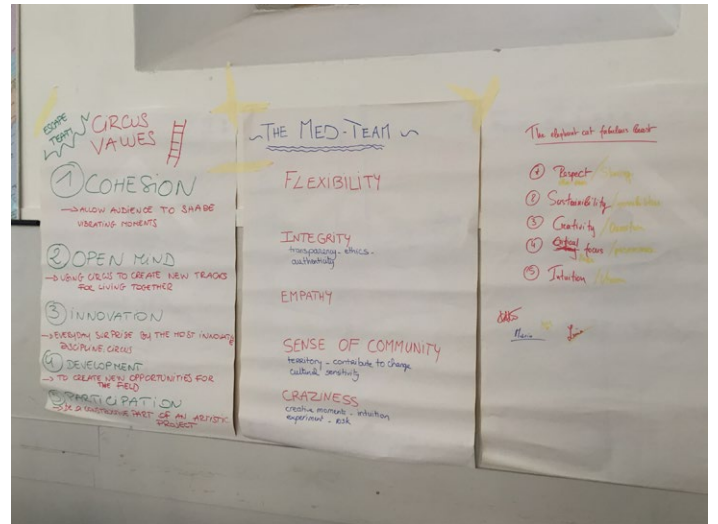 ESCAPE
TEAM
CIRCUS
VALUES
1 COHESION
→ ALLOW AUDIENCE TO SHARE
VIBRATING MOMENTS
2 OPEN MIND
→ USING CIRCUS TO CREATE NEW TRACKS
FOR LIVING TOGETHER
3 INNOVATION
→ EVERYDAY SURPRISE BY THE MOST INNOVATIVE
DISCIPLINE, CIRCUS
4 DEVELOPMENT
→ TO CREATE NEW OPPORTUNITIES FOR
THE FIELD
5 PARTICIPATION
→ BE A CONSTRUCTIVE PART OF AN ARTISTIC
PROJECT
~ THE MED-TEAM ~
FLEXIBILITY
INTEGRITY
transparency - ethics -
authenticity
EMPATHY
SENSE OF COMMUNITY
territory - contribute to change
cultural sensitivity
CRAZINESS
creative moments - intuition
experiment - risk
The elephant cat fabulous Beast
1 Respect
2 Sustainibility
3 Creativity
4 focus
5 Intuition